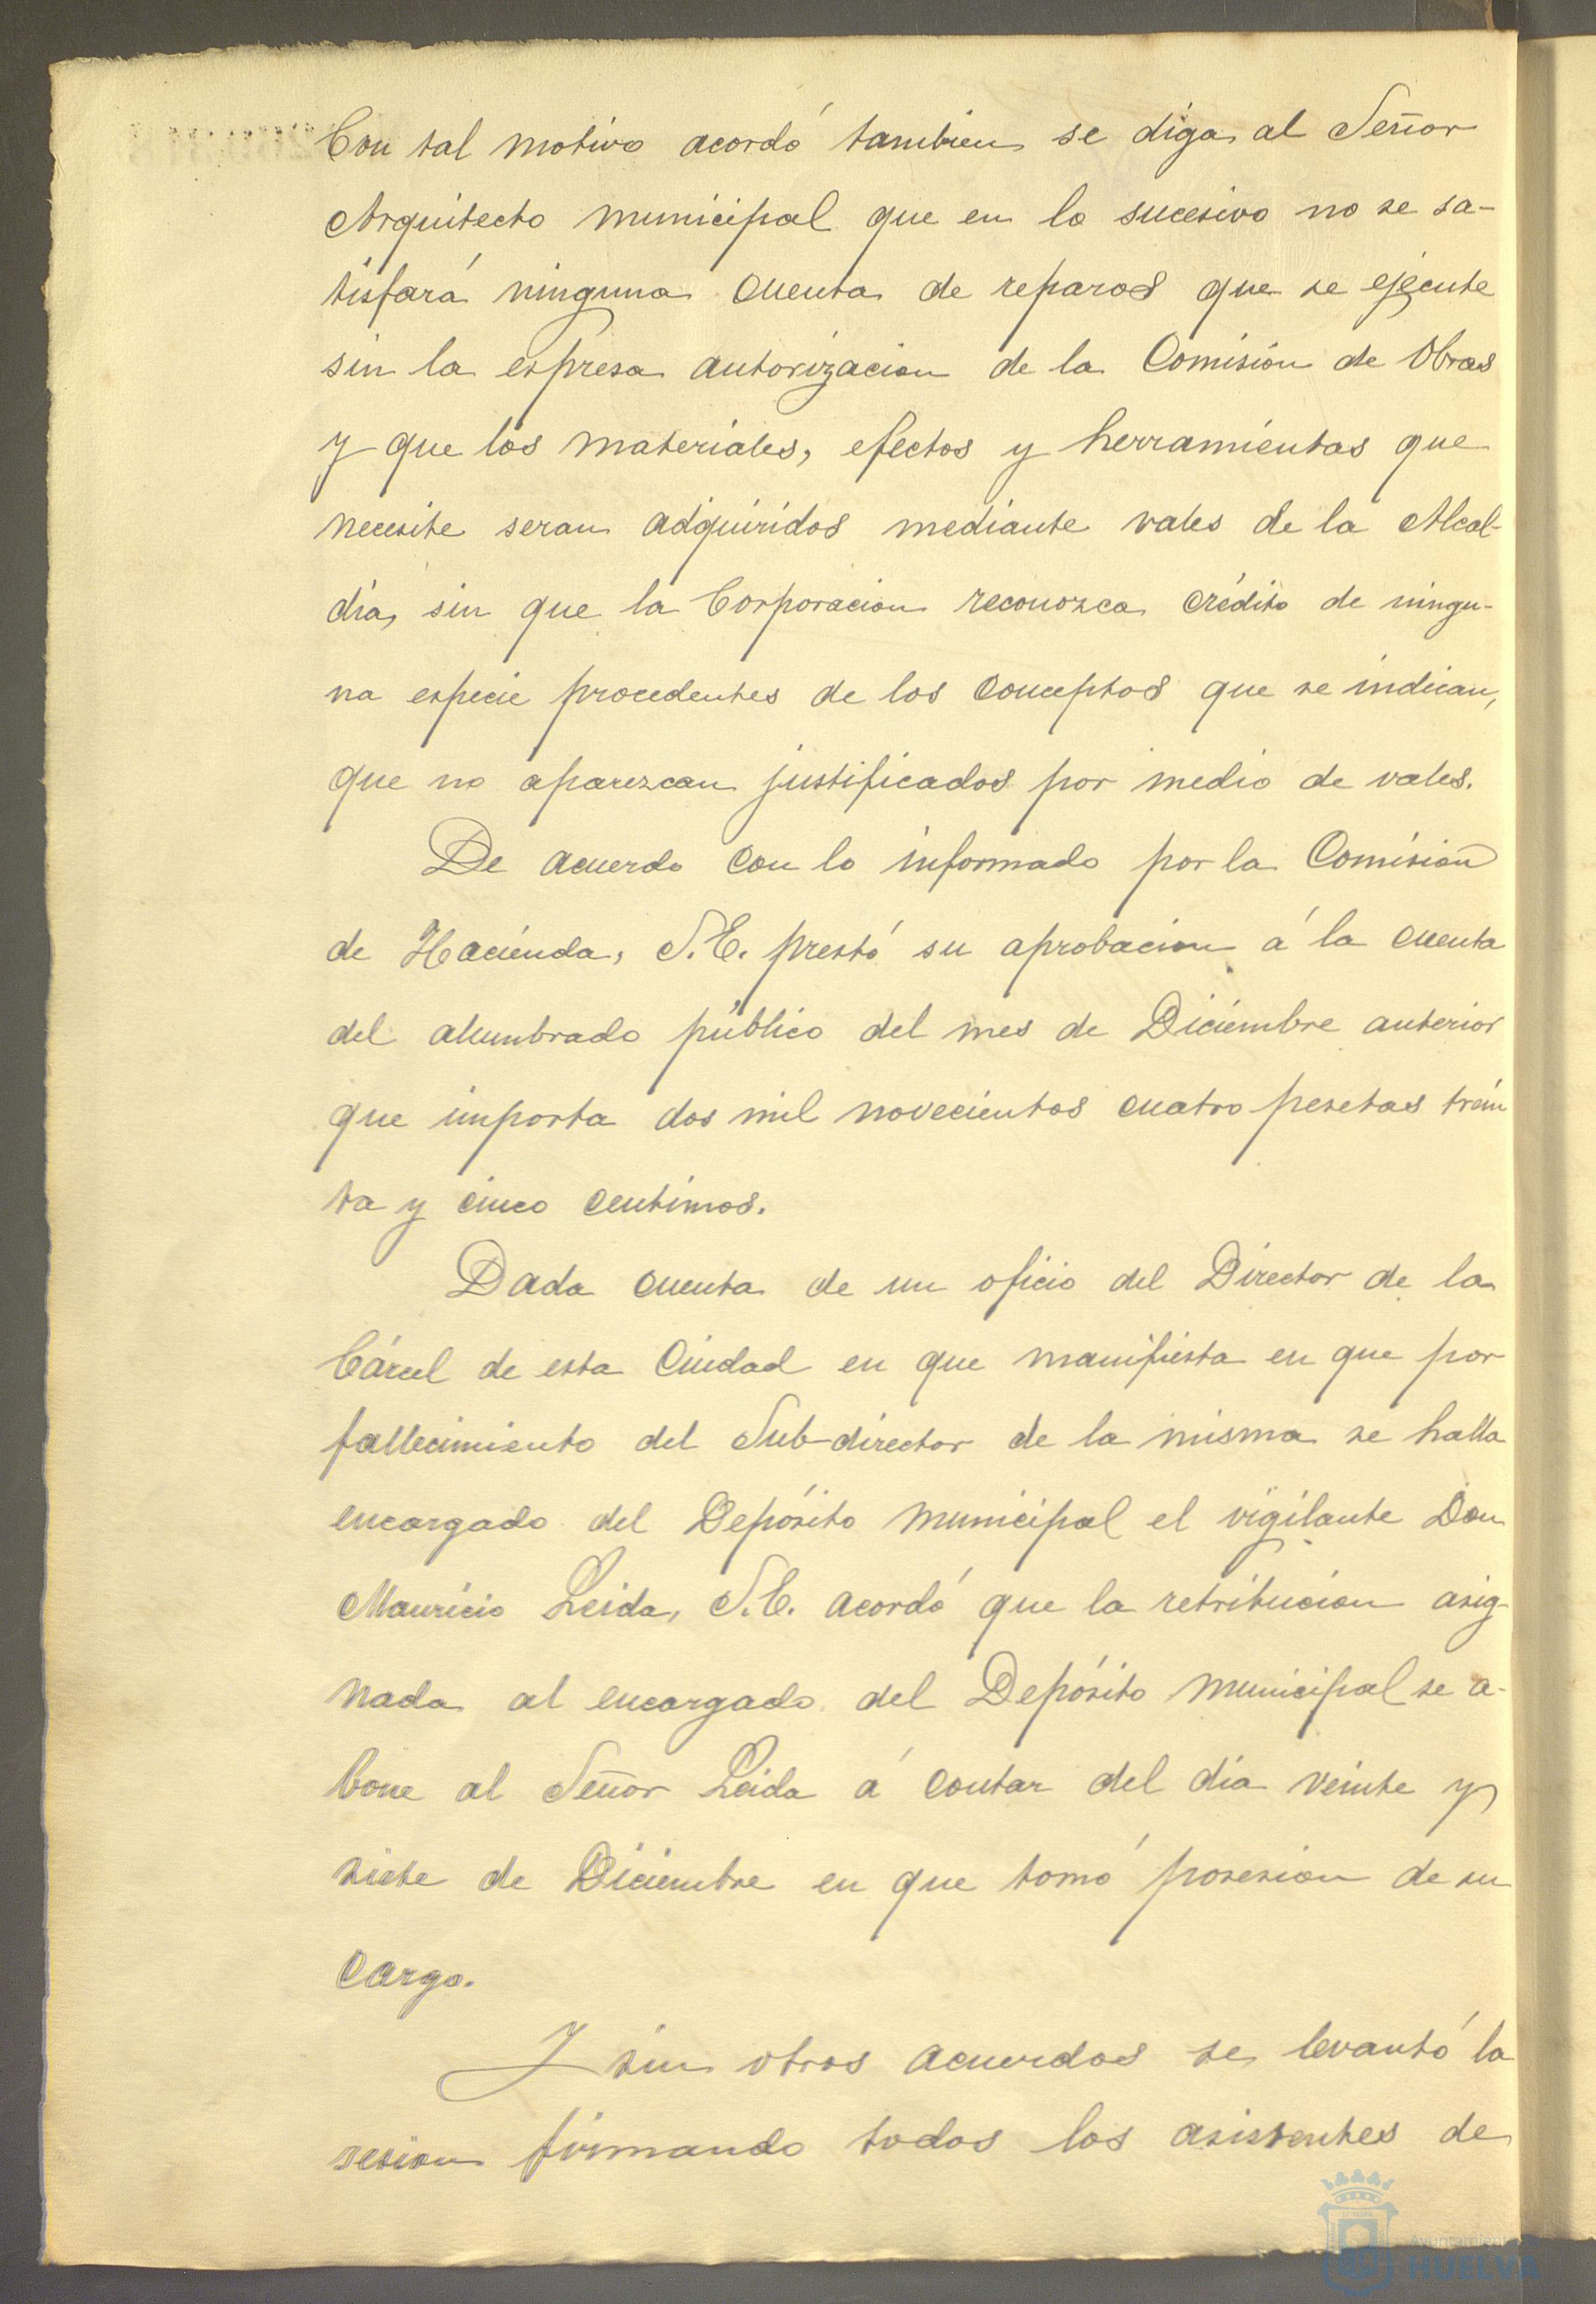 Con tal motivo acordó tambien se diga al Señor
Arquitecto municipal que en lo sucesivo no se sa-
tisfará ninguna cuenta de reparos que se ejecute
sin la espresa autorizacion de la Comisión de Obras
y que los materiales, efectos y herramientas que
necesite seran adquiridos mediante vales de la Alcal-
día, sin que la Corporacion reconozca crédito de ningu-
na especie procedentes de los conceptos que se indican,
que no aparezcan justificados por medio de vales.
De acuerdo con lo informado por la Comision
de Hacienda, S.E. prestó su aprobacion á la cuenta
del alumbrado público del mes de Diciembre anterior
que importa dos mil novecientos cuatro pesetas trein
ta y cinco centimos.
Dada cuenta de un oficio del Director de la
Cárcel de esta Ciudad en que manifiesta en que por
fallecimiento del Sub-director de la misma se halla
encargado del Depósito municipal el vigilante Don
Mauricio Leida, S.E. acordó que la retribucion asig-
nada al encargado del Depósito municipal se a-
bone al Señor Leida á contar del día veinte y
siete de Diciembre en que tomó posesion de su
cargo.
Y sin otros acuerdos se levantó la
sesion firmando todos los asistentes de
Ayuntamiento
HUELVA